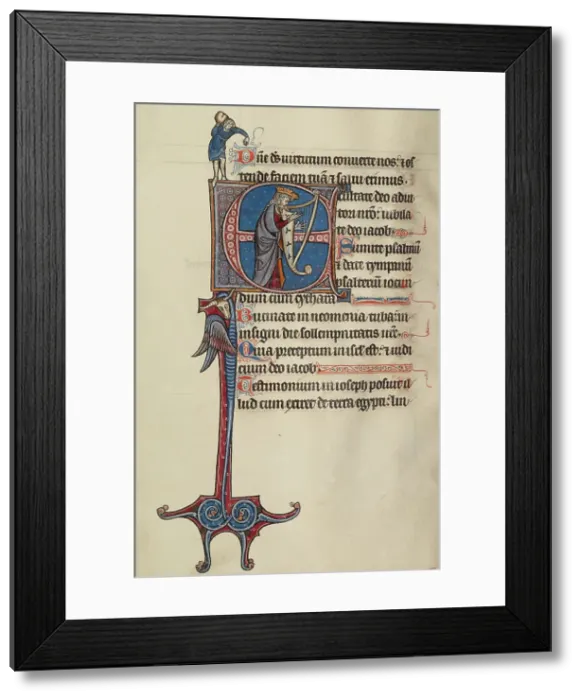 Dñe ds uirtutum conuerte nos: ⁊ os
tende faciem tuā ⁊ salui erimus.
Exultate deo adiu
tori nrō: iubila
te deo iacob.
Sumite psalmū
⁊ date tympanū
psalteriū iocun
dum cum cythara
Bucinate in neomenia tuba: in
insigni die sollempnitatis nrē.
Quia preceptum in isrł est: ⁊ iudi
cium deo iacob.
Testimonium in ioseph posuit il
lud cum exiret de terra egypti: lin